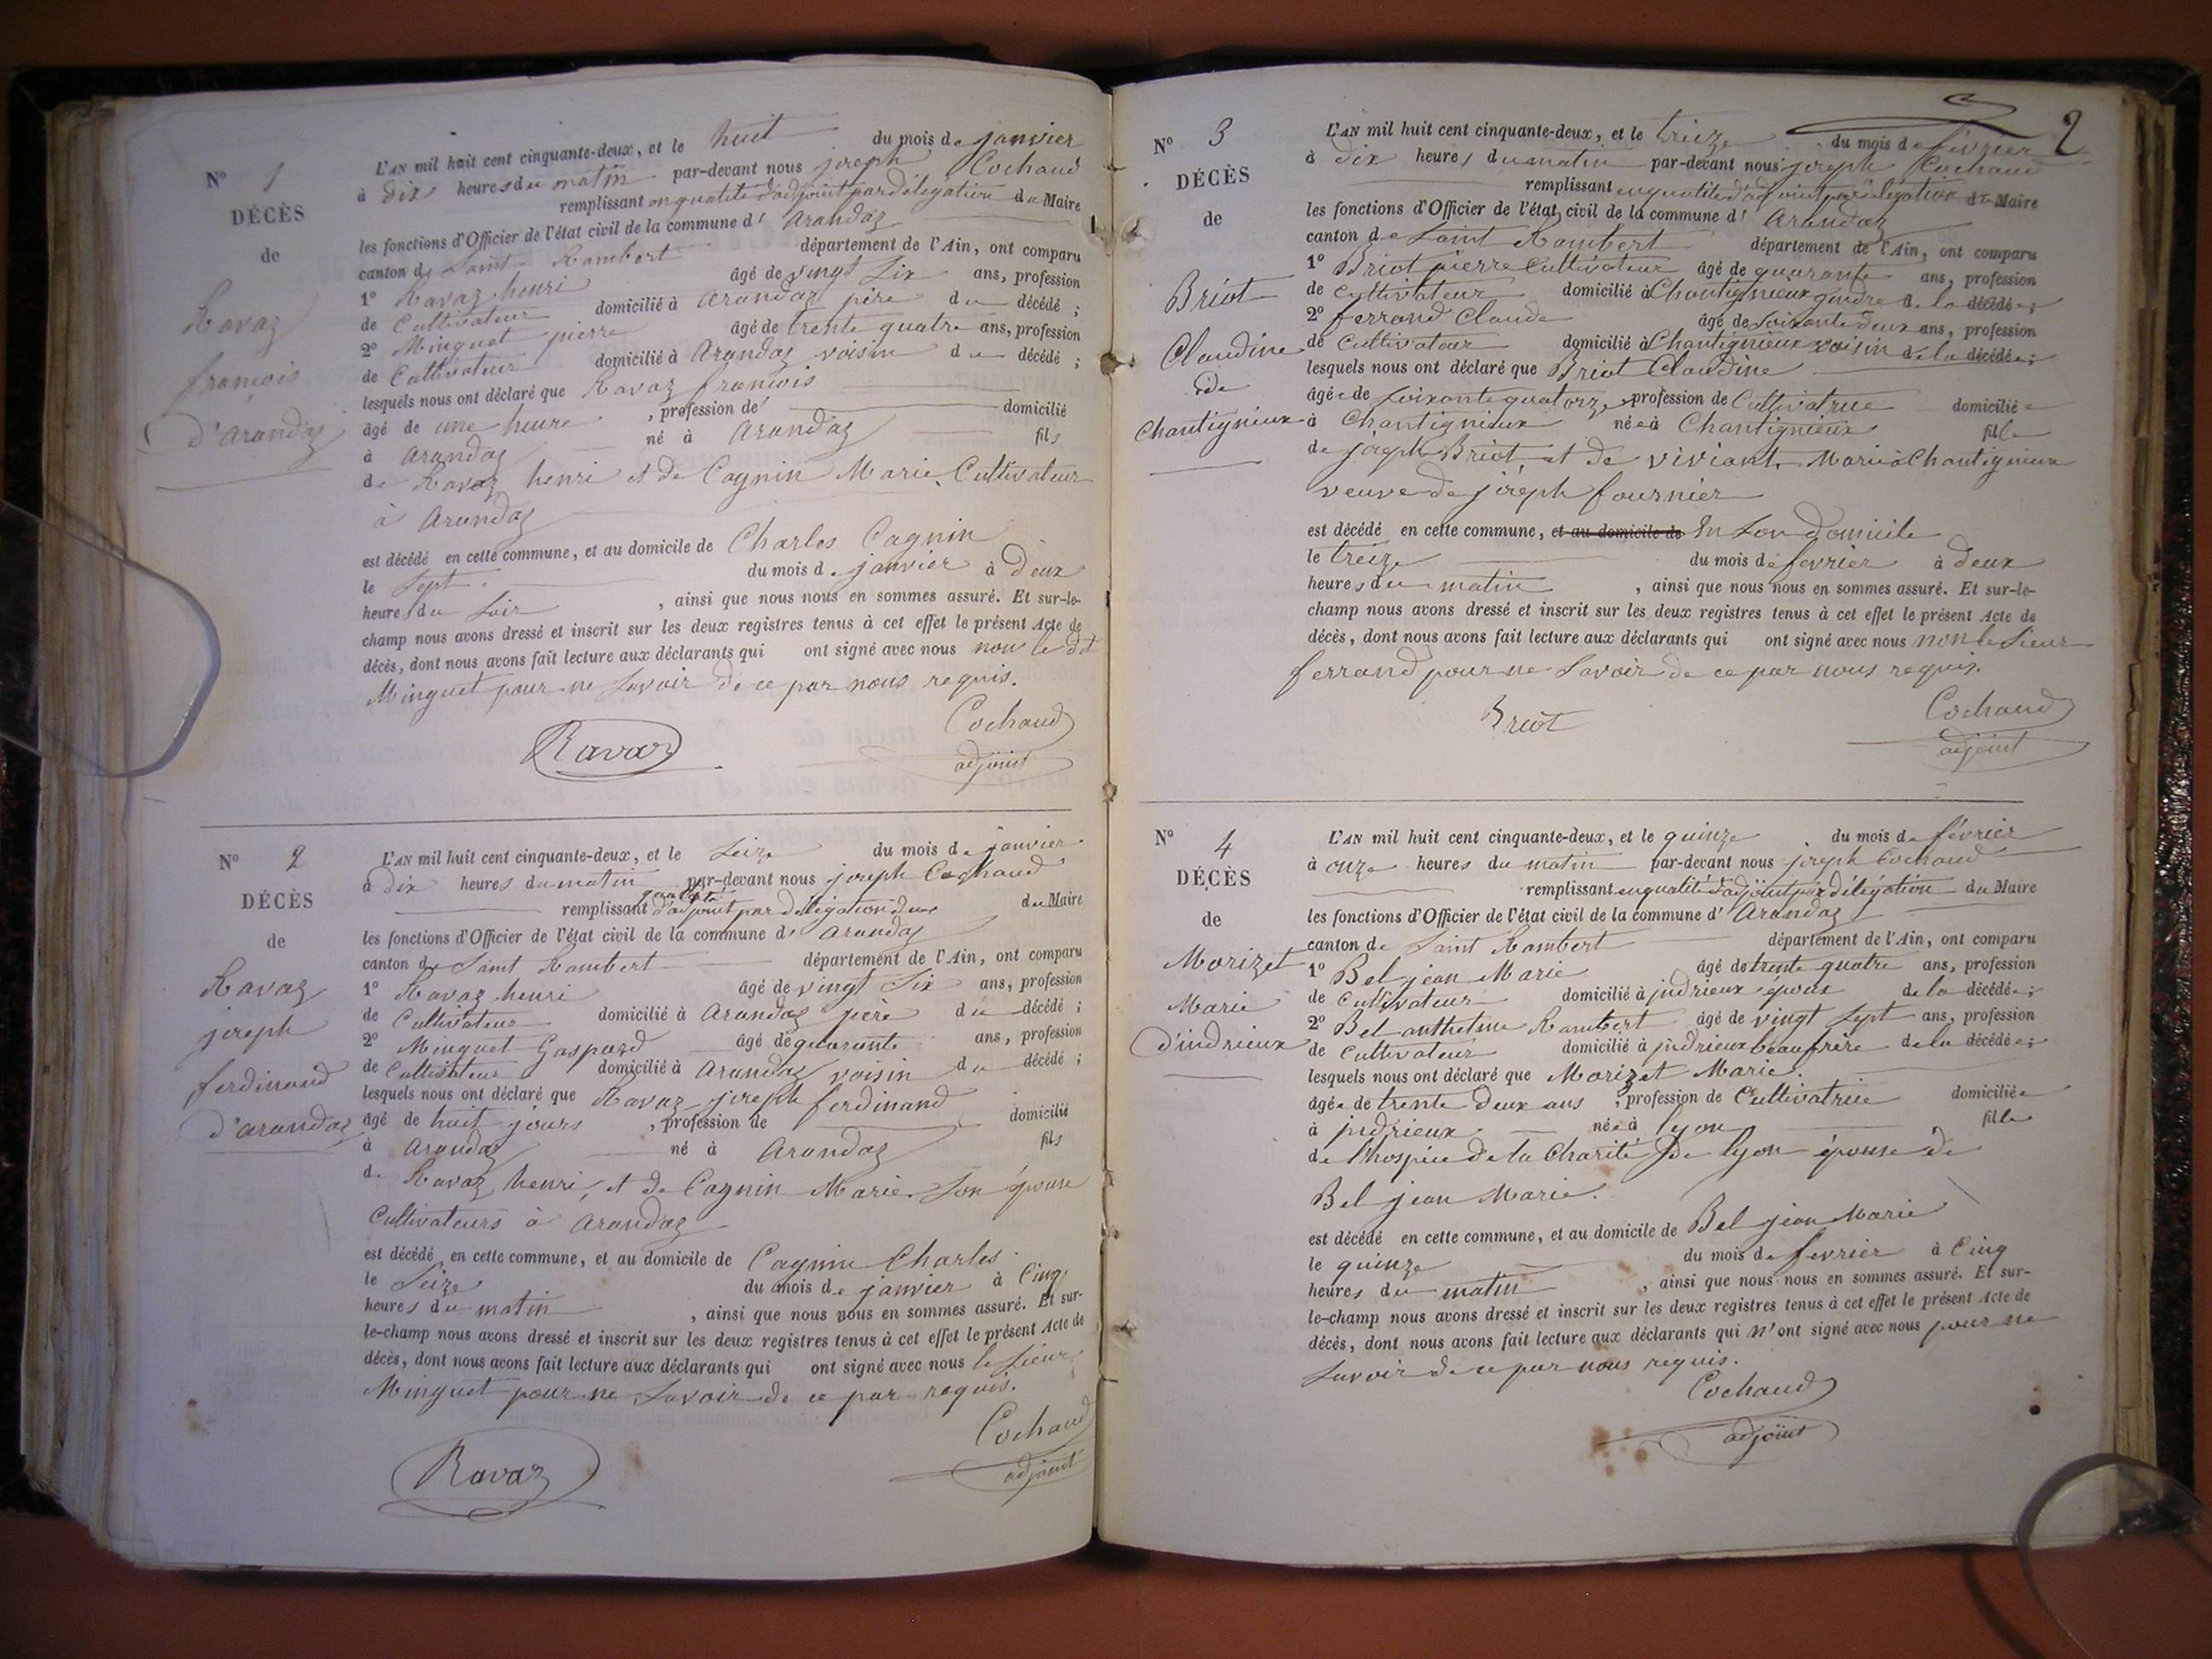 N° 1
DÉCÈS
de
Ravaz
françois
d'Arandaz
L'AN mil huit cent cinquante-deux, et le huit du mois de janvier
à dix heures du matin par-devant nous joseph Cochaud
remplissant en qualité d'adjoint par délégation du Maire
les fonctions d'Officier de l'état civil de la commune d' Arandaz
canton de Saint Rambert département de l'Ain, ont comparu
1° Ravaz henri âgé de vingt Six ans, profession
de Cultivateur domicilié à Arandaz père du décédé ;
2° Minguet pierre âgé de trente quatre ans, profession
de Cultivateur domicilié à Arandaz voisin du décédé ;
lesquels nous ont déclaré que Ravaz françois
âgé de une heure , profession de domicilié
à Arandaz né à Arandaz fils
de Ravaz henri et de Cagnin Marie, Cultivateur
à Arandaz
est décédé en cette commune, et au domicile de Charles Cagnin
le Sept du mois de janvier à deux
heures du Soir , ainsi que nous nous en sommes assuré. Et sur-le-
champ nous avons dressé et inscrit sur les deux registres tenus à cet effet le présent Acte de
décès, dont nous avons fait lecture aux déclarants qui ont signé avec nous non le dt
Minguet pour ne Savoir de ce par nous requis.
Cochaud
Ravaz
adjoint
N° 2
DÉCÈS
de
Ravaz
joseph
ferdinand
d'arandaz
L'AN mil huit cent cinquante-deux, et le Seize du mois de janvier
à dix heures du matin par-devant nous joseph Cochaud
qualité
remplissant d'adjoint par délégation du Maire
les fonctions d'Officier de l'état civil de la commune d' Arandaz
canton de Saint Rambert département de l'Ain, ont comparu
1° Ravaz henri âgé de vingt Six ans, profession
de Cultivateur domicilié à Arandaz père du décédé ;
2° Minguet Gaspard âgé de quarante ans, profession
de Cultivateur domicilié à Arandaz voisin du décédé ;
lesquels nous ont déclaré que Ravaz joseph ferdinand
âgé de huit jours , profession de domicilié
à Arandaz né à Arandaz fils
de Ravaz henri, et de Cagnin Marie Son épouse
Cultivateurs à Arandaz
est décédé en cette commune, et au domicile de Cagnin Charles
le Seize du mois de janvier à Cinq
heures du matin , ainsi que nous nous en sommes assuré. Et sur-
le-champ nous avons dressé et inscrit sur les deux registres tenus à cet effet le présent Acte de
décès, dont nous avons fait lecture aux déclarants qui ont signé avec nous le Sieur
Minguet pour ne Savoir de ce par requis.
Cochaud
Ravaz
adjoint
2
N° 3
DÉCÈS
de
Briot
Claudine
de
Chantignieux
L'AN mil huit cent cinquante-deux, et le treize du mois de février
à dix heures du matin par-devant nous joseph Cochaud
remplissant en qualité d'adjoint par délégation du Maire
les fonctions d'Officier de l'état civil de la commune d' Arandaz
canton de Saint Rambert département de l'Ain, ont comparu
1° Briot pierre Cultivateur âgé de quarante ans, profession
de Cultivateur domicilié à Chantignieux gendre de la décédée ;
2° ferrand Claude âgé de Soixante deux ans, profession
de Cultivateur domicilié à Chantignieux voisin de la décédée ;
lesquels nous ont déclaré que Briot Claudine
âgée de Soixante quatorze profession de Cultivatrice domiciliée
à Chantignieux née à Chantignieux fille
de joseph Briot, et de viviant Marie à Chantignieux
veuve de joseph fournier
est décédé en cette commune, et au domicile de En Son domicile
le treize du mois de fevrier à deux
heures du matin , ainsi que nous nous en sommes assuré. Et sur-le-
champ nous avons dressé et inscrit sur les deux registres tenus à cet effet le présent Acte de
décès, dont nous avons fait lecture aux déclarants qui ont signé avec nous non le Sieur
ferrand pour ne Savoir de ce par nous requis.
Briot
Cochaud
adjoint
N° 4
DÉCÈS
de
Morizet
Marie
d'indrieux
L'AN mil huit cent cinquante-deux, et le quinze du mois de février
à onze heures du matin par-devant nous joseph Cochaud
remplissant en qualité d'adjoint par délégation du Maire
les fonctions d'Officier de l'état civil de la commune d' Arandaz
canton de Saint Rambert département de l'Ain, ont comparu
1° Bel jean Marie âgé de trente quatre ans, profession
de Cultivateur domicilié à indrieux époux de la décédée ;
2° Bel anthelme Rambert âgé de vingt Sept ans, profession
de Cultivateur domicilié à indrieux beaufrère de la décédée ;
lesquels nous ont déclaré que Morizet Marie.
âgée de trente deux ans , profession de Cultivatrice domiciliée
à indrieux née à lyon fille
de l'hospice de la Charité de lyon épouse de
Bel jean Marie.
est décédé en cette commune, et au domicile de Bel jean Marie
le quinze du mois de fevrier à Cinq
heures du matin , ainsi que nous nous en sommes assuré. Et sur-
le-champ nous avons dressé et inscrit sur les deux registres tenus à cet effet le présent Acte de
décès, dont nous avons fait lecture aux déclarants qui n'ont signé avec nous pour ne
Savoir de ce par nous requis.
Cochaud
adjoint